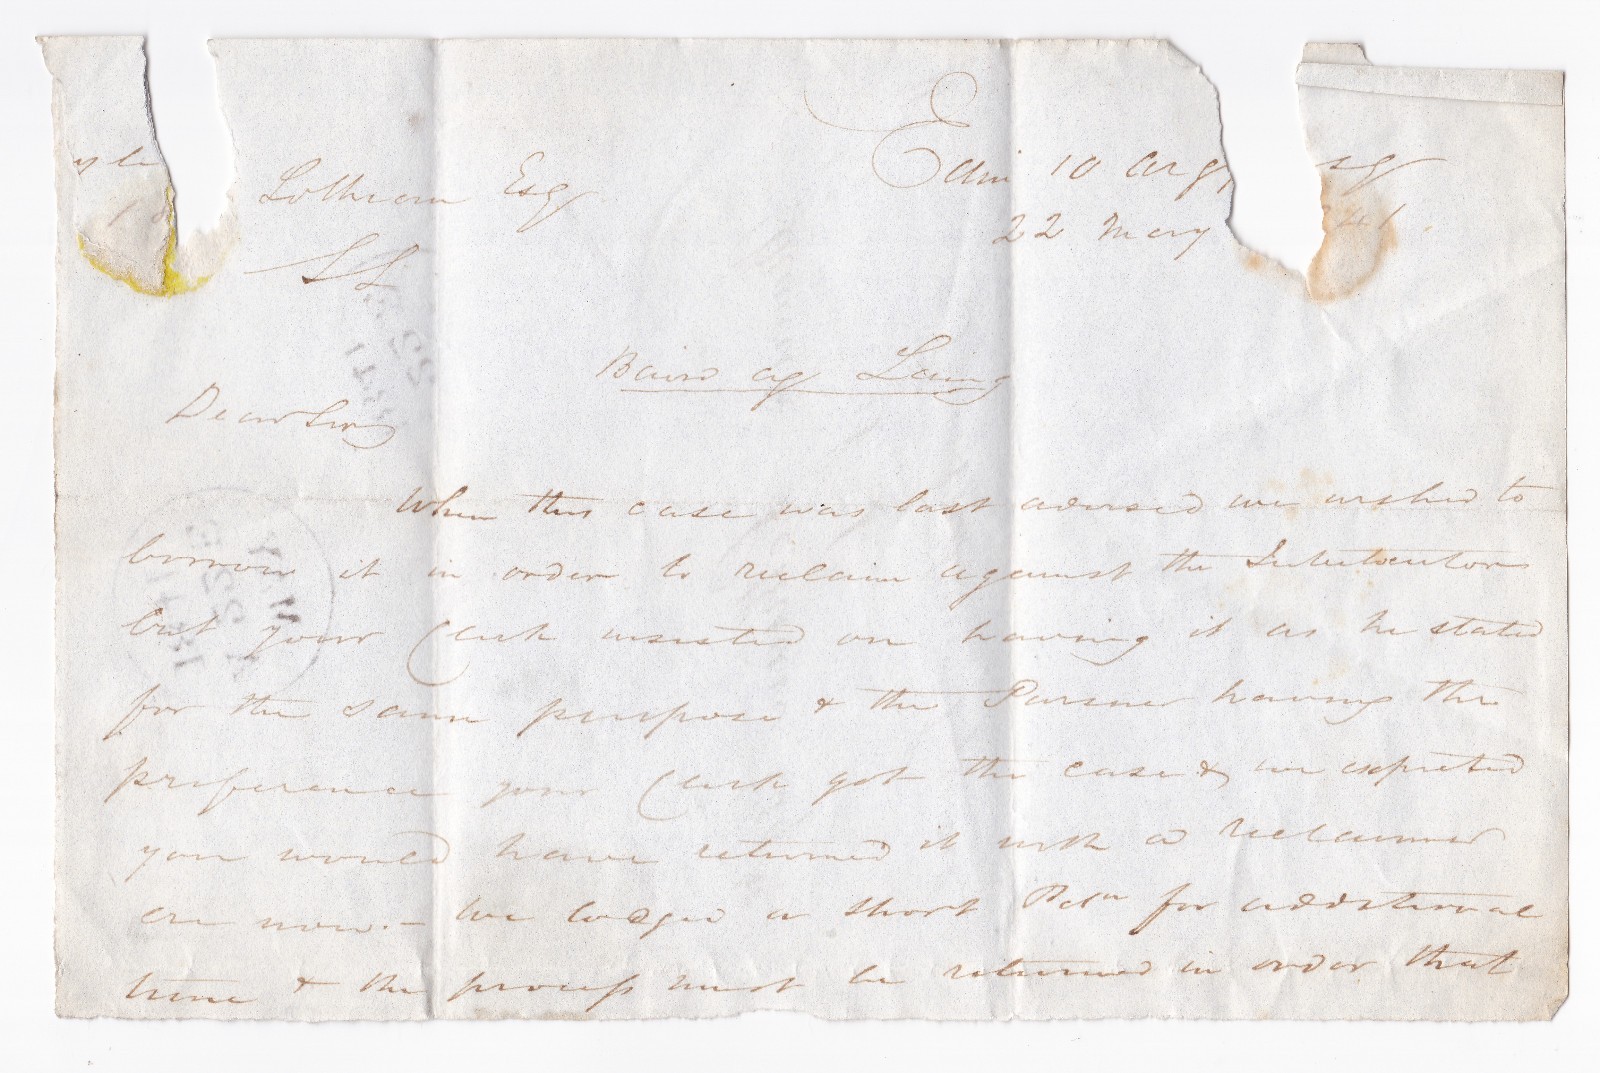 Lothian Esq
Edin 10 Arg sq
22 May 41.
SL
Baird ag Laing
Dear Sir
When this case was last advised we wished to
borrow it in order to reclaim against the Interlocutor
but your Clerk insisted on having it as he stated
for the same purpose & the Pursuer having the
preference your Clerk got the case & we expected
you would have returned it with a reclaimer
ere now. – We lodged a short Petn for additional
time & the process must be returned in order that